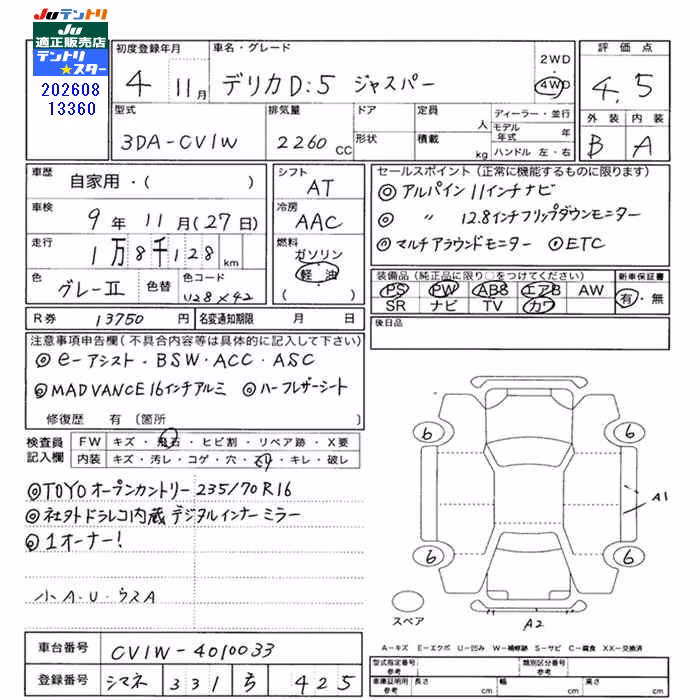 Juテントリ
Ju
適正販売店
テントリ
スター
202608
13360
初度登録年月
4 11月
車名・グレード
デリカD:5 ジャスパー
2WD
4WD
評価点
4.5
外装 内装
B A
型式
3DA-CV1W
排気量
2260 CC
ドア
形状
定員 人
積載 kg
ディーラー・並行
モデル年式 年
ハンドル 左・右
車歴
自家用・( )
車検
9年 11月(27日)
走行
1万8千128 km
色
グレーⅡ
色替
色コード
U28×42
シフト
AT
冷房
AAC
燃料
ガソリン
軽油
( )
セールスポイント(正常に機能するものに限ります)
◎アルパイン11インチナビ
◎ 〃 12.8インチフリップダウンモニター
◎マルチアラウンドモニター ◎ETC
装備品(純正品に限り○をつけてください)
PS PW ABS エアB AW
SR ナビ TV カワ
新車保証書
有・無
R券 13750円
名変通知期限 月 日
後日品
注意事項申告欄(不具合内容等は具体的に記入して下さい)
◎e-アシスト・BSW・ACC・ASC
◎MADVANCE16インチアルミ ◎ハーフレザーシート
修復歴 有〔箇所 〕
検査員記入欄
FW キズ・飛石・ヒビ割・リペア跡・X要
内装 キズ・汚レ・コゲ・穴・スリ・キレ・破レ
◎TOYOオープンカントリー235/70R16
◎社外ドラレコ内蔵デジタルインナーミラー
◎1オーナー!
小A・U・ウスA
6 6
A1
6 6
スペア
A2
A-キズ E-エクボ U-凹み W-補修跡 S-サビ C-腐食 XX-交換済
車台番号 CV1W-4010033
登録番号 シマネ 331 ち 425
型式指定番号 参考
類別区分番号 参考
車庫証明用 参考 長さ cm 幅 cm 高さ cm